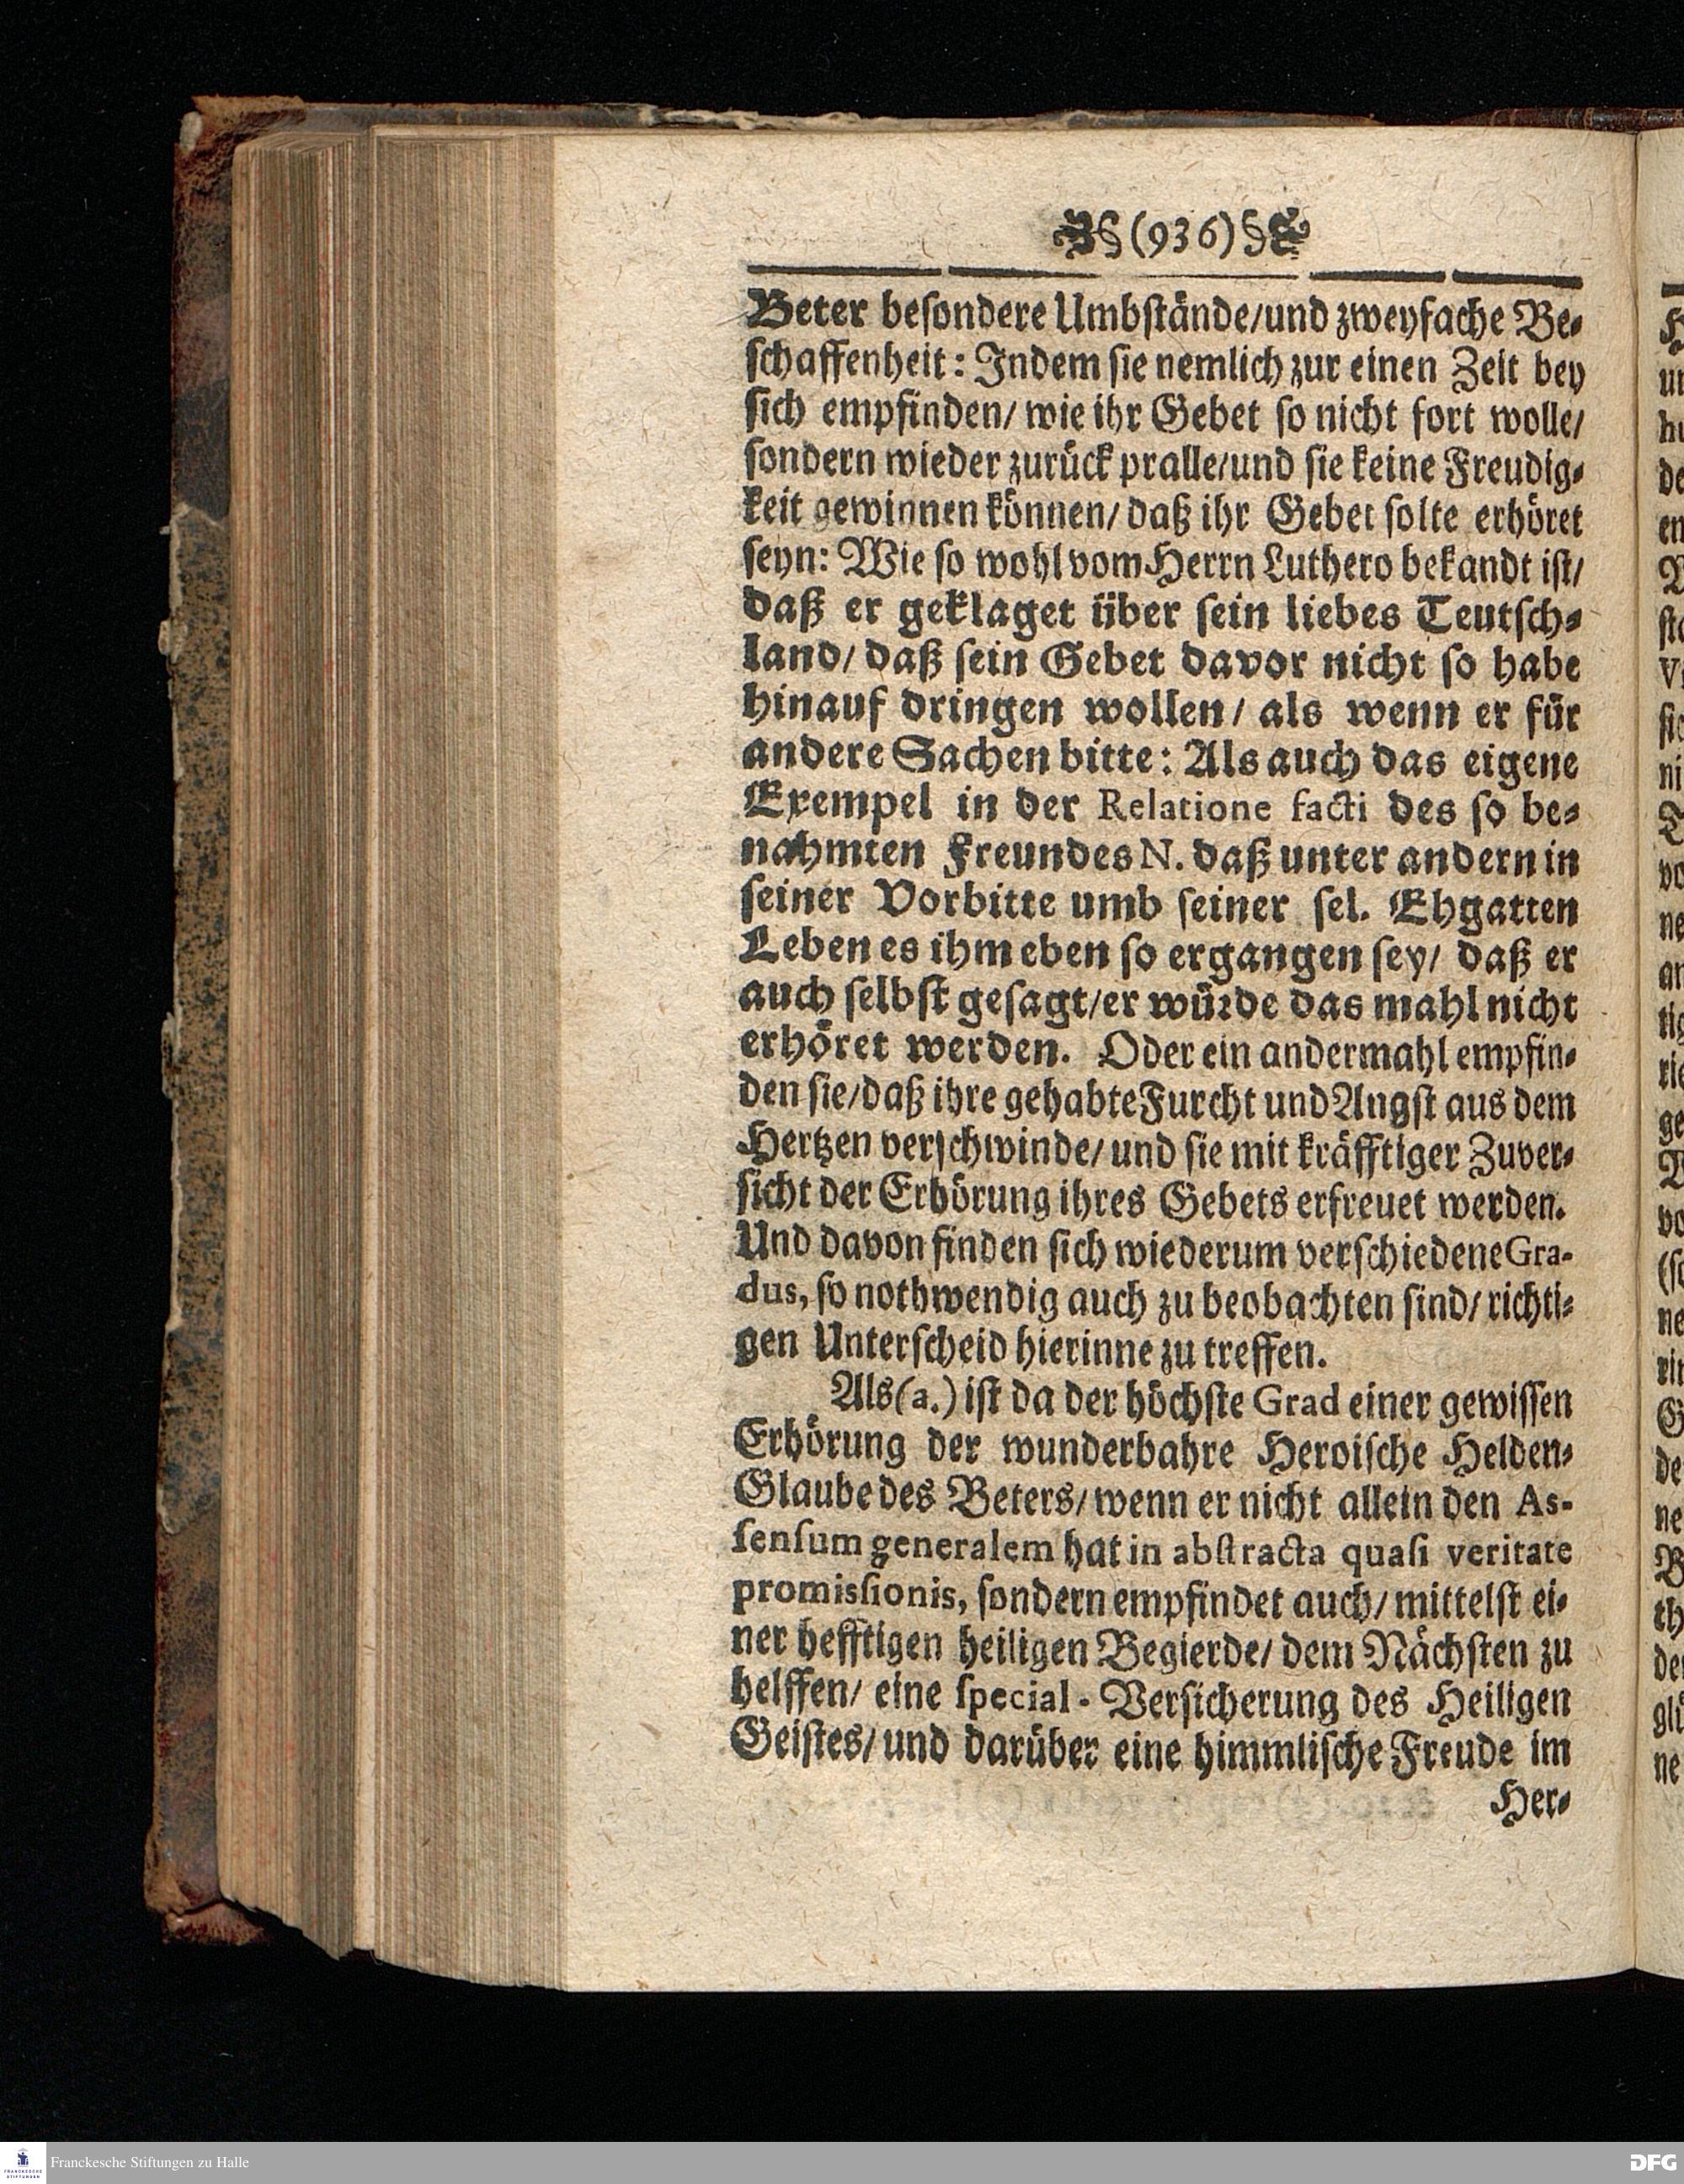 (936)
Beter beſondere Umbſtände/und zweyfache Be-
ſchaffenheit: Indem ſie nemlich zur einen Zeit bey
ſich empfinden/ wie ihr Gebet ſo nicht fort wolle/
ſondern wieder zurück pralle/und ſie keine Freudig-
keit gewinnen können/ daß ihr Gebet ſolte erhöret
ſeyn: Wie ſo wohl vom Herrn Luthero bekandt iſt/
daß er geklaget über ſein liebes Teutſch-
land/ daß ſein Gebet davor nicht ſo habe
hinauf dringen wollen/ als wenn er für
andere Sachen bitte: Als auch das eigene
Exempel in der Relatione facti des ſo be-
nahmten Freundes N. daß unter andern in
ſeiner Vorbitte umb ſeiner ſel. Ehgatten
Leben es ihm eben ſo ergangen ſey/ daß er
auch ſelbſt geſagt/er würde das mahl nicht
erhöret werden. Oder ein andermahl empfin-
den ſie/daß ihre gehabte Furcht und Angſt aus dem
Hertzen verſchwinde/ und ſie mit kräfftiger Zuver-
ſicht der Erhörung ihres Gebets erfreuet werden.
Und davon finden ſich wiederum verſchiedene Gra-
dus, ſo nothwendig auch zu beobachten ſind/ richti-
gen Unterſcheid hierinne zu treffen.
Als (a.) iſt da der höchſte Grad einer gewiſſen
Erhörung der wunderbahre Heroiſche Helden-
Glaube des Beters/ wenn er nicht allein den As-
ſenſum generalem hat in abſtracta quaſi veritate
promisſionis, ſondern empfindet auch/ mittelſt ei-
ner hefftigen heiligen Begierde/ dem Nächſten zu
helffen/ eine ſpecial-Verſicherung des Heiligen
Geiſtes/ und darüber eine himmliſche Freude im
Her-
Franckesche Stiftungen zu Halle
DFG